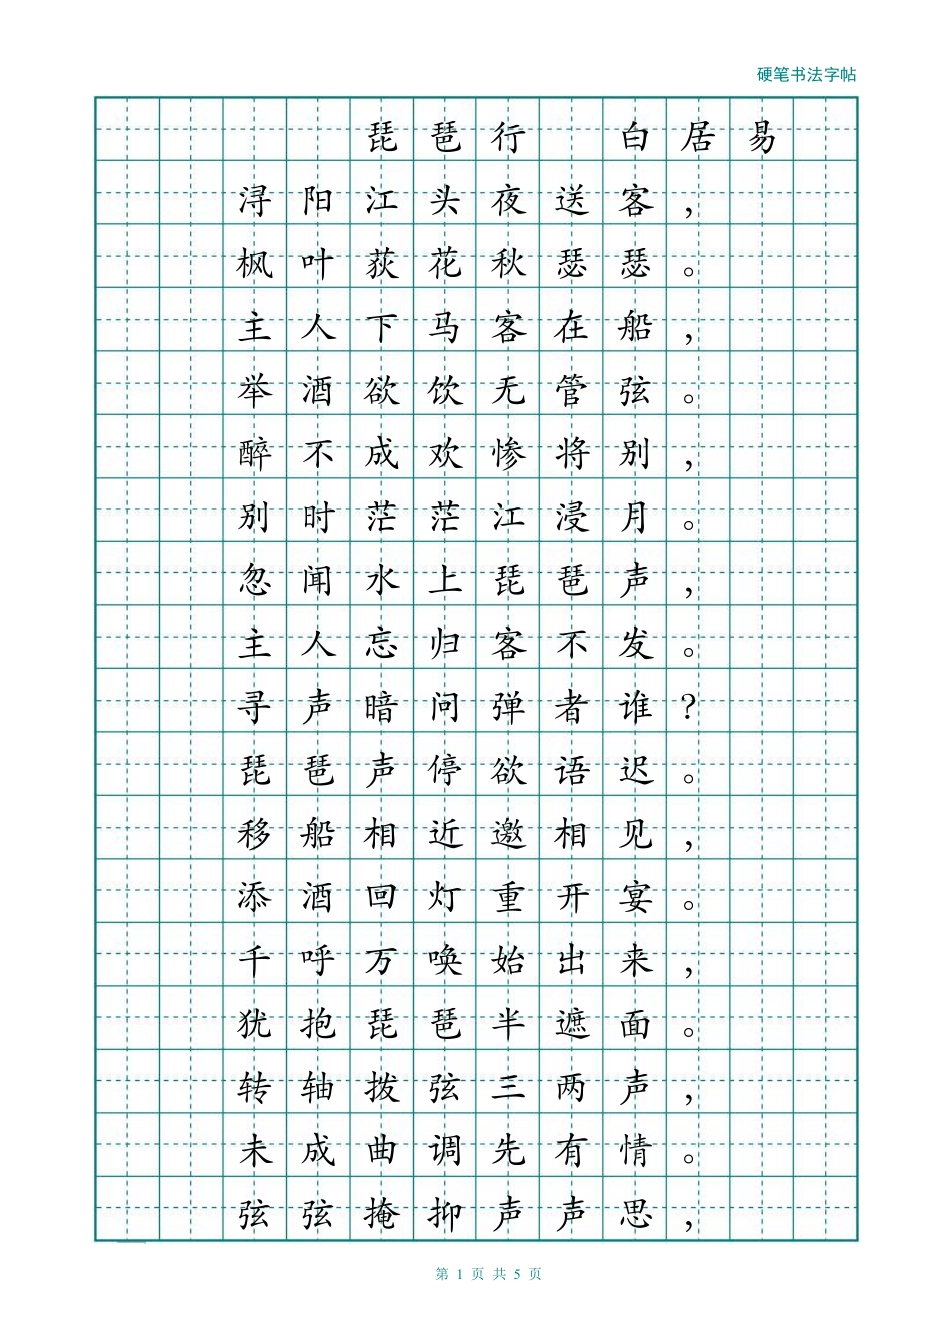 硬笔书法字帖
琵琶行 白居易
浔阳江头夜送客，
枫叶荻花秋瑟瑟。
主人下马客在船，
举酒欲饮无管弦。
醉不成欢惨将别，
别时茫茫江浸月。
忽闻水上琵琶声，
主人忘归客不发。
寻声暗问弹者谁?
琵琶声停欲语迟。
移船相近邀相见，
添酒回灯重开宴。
千呼万唤始出来，
犹抱琵琶半遮面。
转轴拨弦三两声，
未成曲调先有情。
弦弦掩抑声声思，
第 1 页 共 5 页